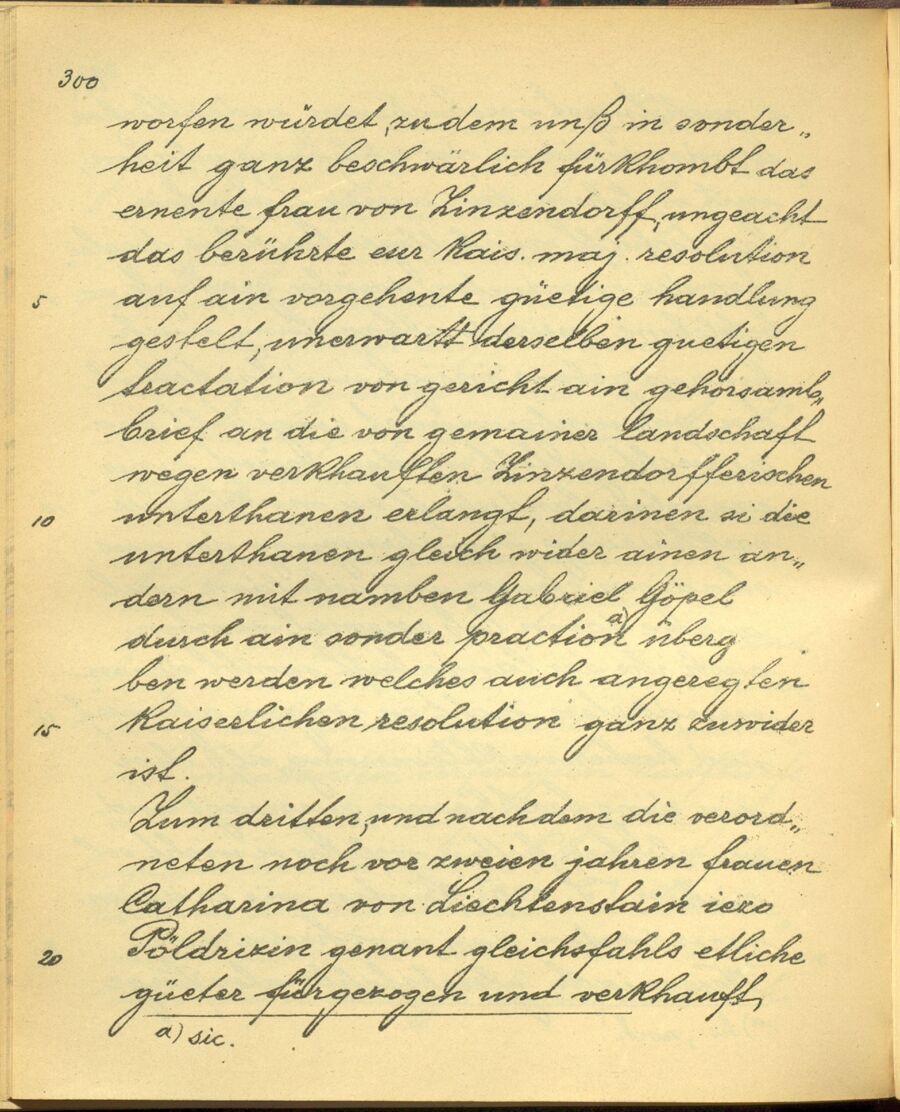 300
worfen würdet, zu dem unß in sonder„
heit ganz beschwärlich fürkhombt das
ernente frau von Zinzendorff, ungeacht
das berührte eur Kais. maj. resolution
5 auf ain vorgehente güetige handlung
gestelt, unerwartt derselben guetigen
tractation von gericht ain gehorsamb„
brief an die von gemainer landschaft
wegen verkhauften Zinzendorfferischen
10 unterthanen erlangt, darinen si die
unterthanen gleich wider ainen an„
dern mit namben Gabriel Göpel
durch ain sonder praction a) überg
ben werden welches auch angeregten
15 Kaiserlichen resolution ganz zuwider
ist.
Zum dritten, und nachdem die verord„
neten noch vor zweien jahren frauen
Catharina von Liechtenstain iezo
20 Pöldrizin genant gleichsfahls etliche
güeter fürgezogen und verkhauft,
a) sic.